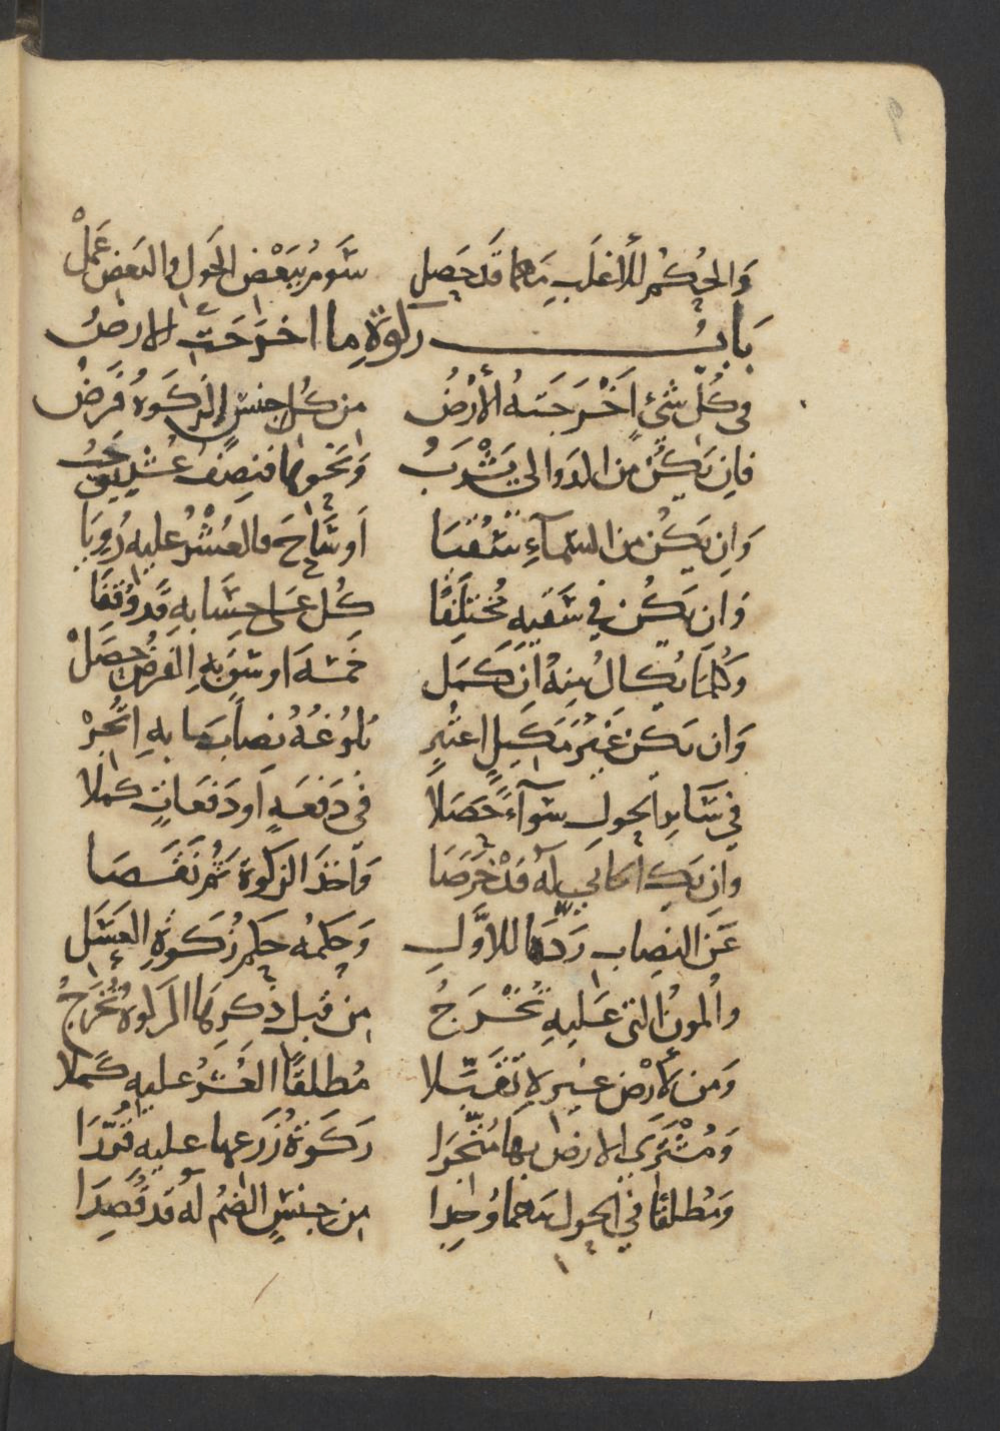 وَالحُكْمُ للأغلَبِ مَهما قَد حَصل سَومٌ ببَعْض الحَول والبَعض عَملْ
بَابُ زكوةِ ما اخرَجَت الارضُ
في كُلّ شئ اَخْرَجَتهُ الأرْضُ من كُل جنسٍ الزكَوةُ فَرضُ
فاِن يَكُن من الدَوالي يَشْرَبُ وَنحوِها فنِصفُ عُشرٍ يجبُ
وَاِن يَكُن من السّماَءِ سُقيَا اَو سَاحَ فالعُشْرُ عليهِ رُويَا
وَان يَكُن في سَقيِهِ مُختَلِفًا كُل عَلى حِسَابهِ قَد وُقِفَا
وَكُلمَا يُكال مِنهُ اَن كَمَل خَمسَة اوسَق بهِ الفَرضُ حصَلْ
وَان يَكن غَيرَ مَكيلٍ اعتُبِر بُلوغُهُ نِصابَ ما بهِ اتُّجِرْ
في سَايِر الحول سَوَاءً حَصَلاَ في دَفعَهٍ اَو دَفعَاتٍ كملا
وان يَكُ الجابي لَهُ قَدْ خَرَصَا وَاخَذَ الزكوةَ ثم نَقَصَا
عَن النِصابِ رَدّهَا للاَوَّلِ وَحكمُه حكمُ زكَوةِ العَسَلِ
والمُونُ التي عَلَيهِ تُخْرَجُ من قَبل ذكرِها الزكوةُ تُخرَجُ
وَمن لأَرْض غيرِهِ تَقَبّلا مُطلَقًا العُشرُ عليهِ كَملا
وَمُشْتَري الارضَ بها مُتّجِرا زكَوةُ زَرعها عليهِ قُرّرَا
وَمُطلقًا في الحول مَهما وُجِدا من جِنسٍ الضمُ لَهُ قَد قُصِدَا